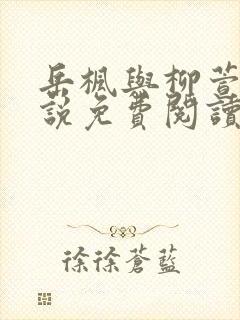 岳楓與柳萱
說免費閱讀
徐徐蒼藍